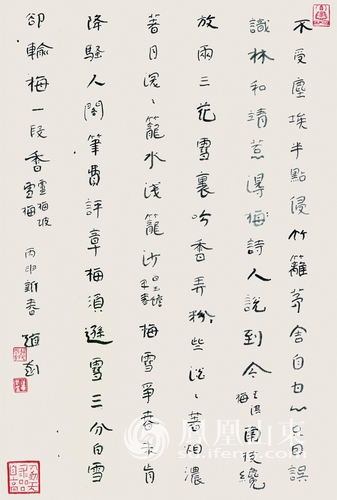 不受塵埃半點侵竹籬茅舍自甘心只因誤
識林和靖惹得梅詩人說到今王淇梅南枝纔
放兩三花雪裏吟香弄粉些淡々著烟濃
著月深々籠水淺籠沙白玉蟾早春梅雪爭春未肯
降騷人閣筆費評章梅須遜雪三分白雪
卻輸梅一段香盧梅坡雪梅丙申新春趙
鳳凰山東
sd.ifeng.com